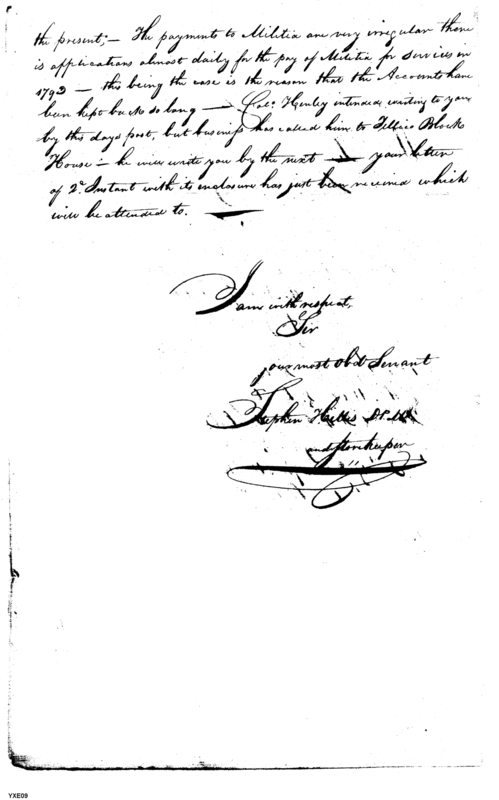 the present; — The payments to Militia are very irregular there
is applications almost daily for the pay of Militia for Services in
1793 — this being the case is the reason that the Accounts have
been kept back so long — Colo. Henley intended writing to you
by this days post, but business has called him to Tellico Block
House — he will write you by the next — your letter
of 2d. Instant with its enclosure has just been received which
will be attended to. —
I am with respect,
Sir
your most Obdt Servant
Stephen Hillis
and Storekeeper
YXE09